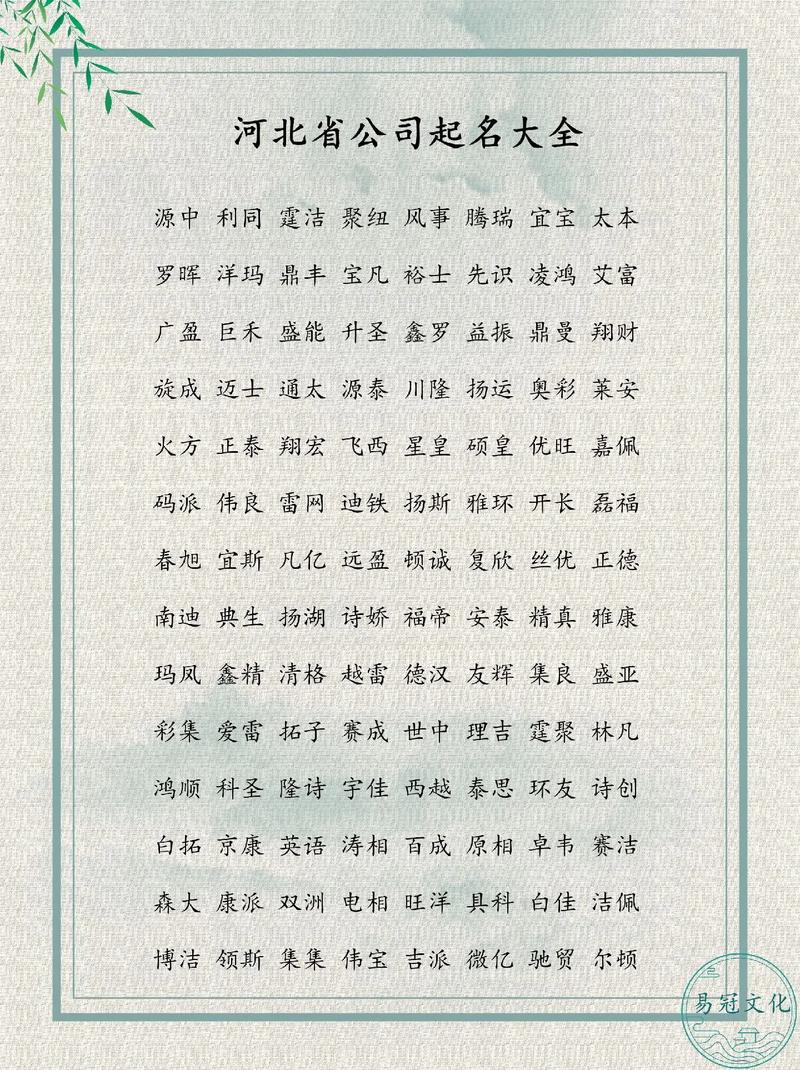 河北省公司起名大全
源中 利同 霆洁 聚纽 风事 腾瑞 宜宝 太本
罗晖 洋玛 鼎丰 宝凡 裕士 先识 凌鸿 艾富
广盈 巨禾 盛能 升圣 鑫罗 益振 鼎曼 翔财
旋成 迈士 通太 源泰 川隆 扬运 奥彩 莱安
火方 正泰 翔宏 飞西 星皇 硕皇 优旺 嘉佩
码派 伟良 雷网 迪铁 扬斯 雅环 开长 磊福
春旭 宜斯 凡亿 远盈 顿诚 复欣 丝优 正德
南迪 典生 扬湖 诗娇 福帝 安泰 精真 雅康
玛凤 鑫精 清格 越雷 德汉 友辉 集良 盛亚
彩集 爱雷 拓子 赛成 世中 理吉 霆聚 林凡
鸿顺 科圣 隆诗 宇佳 西越 泰思 环友 诗创
白拓 京康 英语 涛相 百成 原相 卓韦 赛洁
森大 康派 双洲 电相 旺洋 具科 白佳 洁佩
博洁 领斯 集集 伟宝 吉派 微亿 驰贸 尔顿
易冠文化